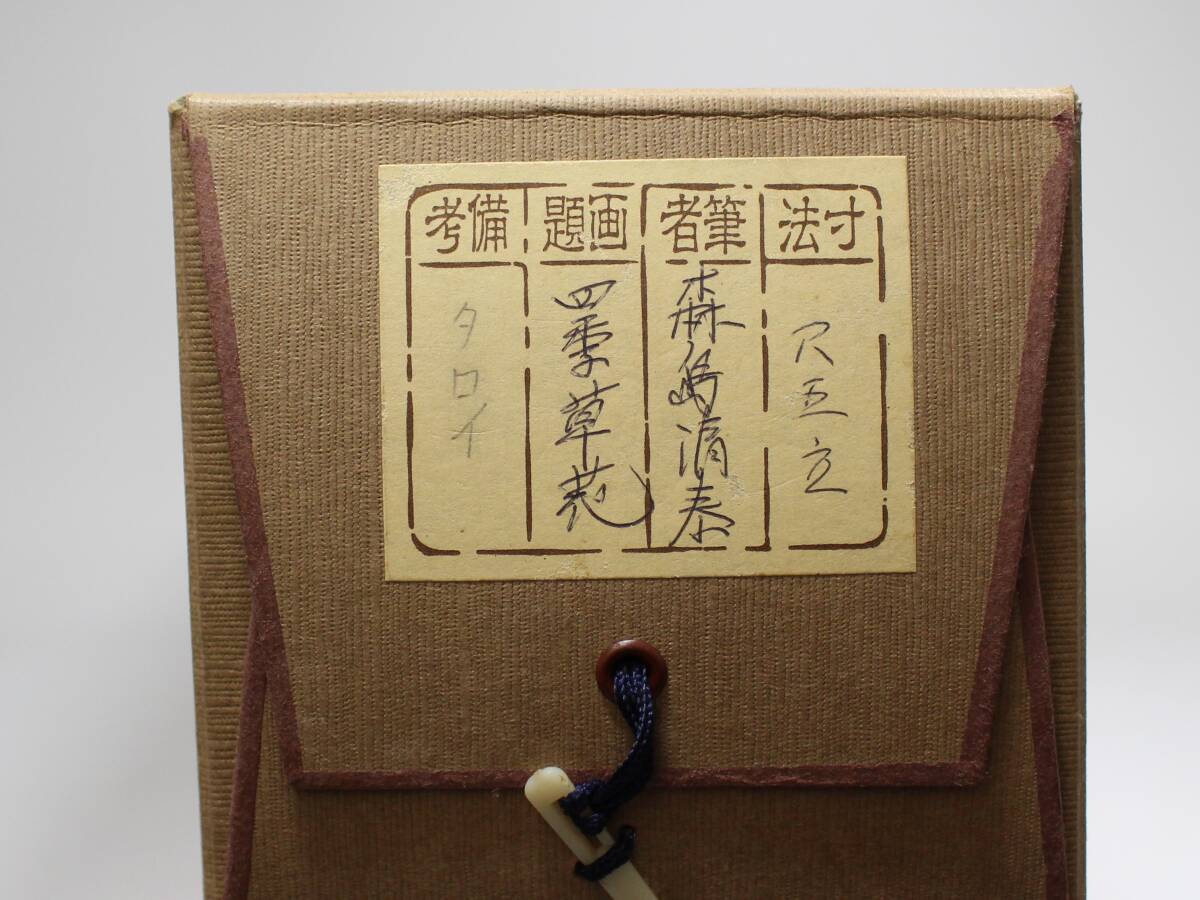 寸法
尺五立
筆者
森島清泰
画題
四季草花
備考
タロイ